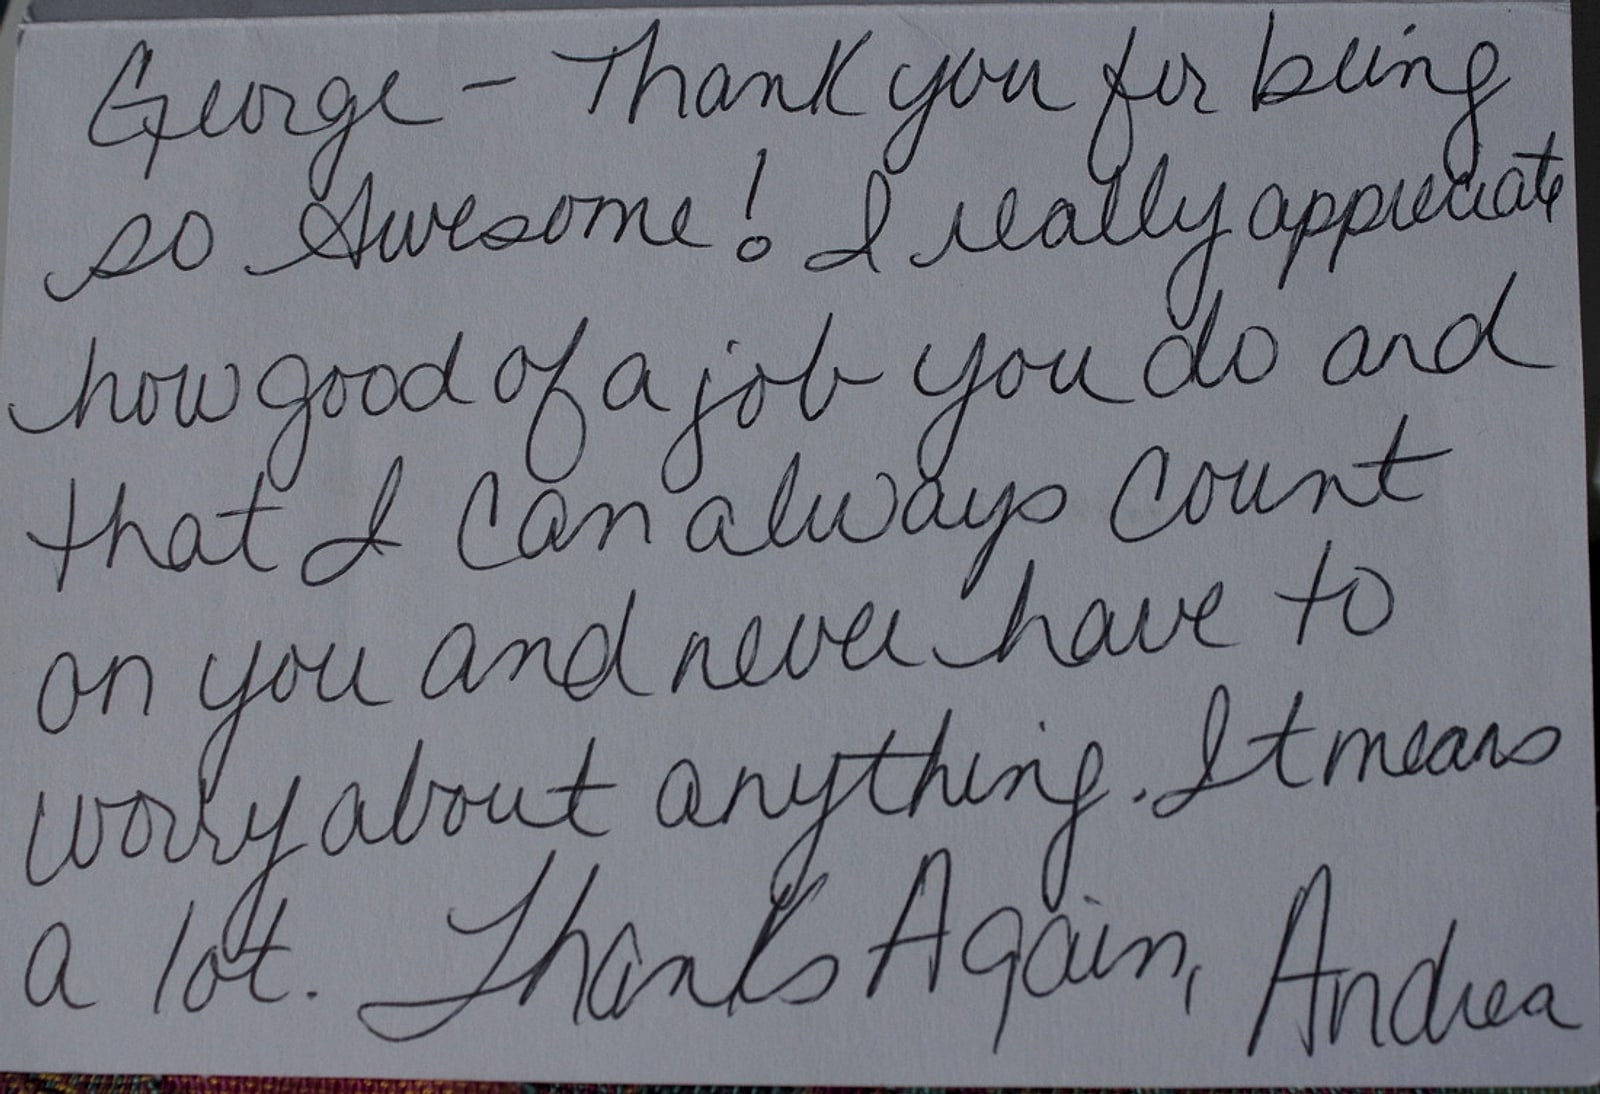 George - Thank you for being
so Awesome! I really appreciate
how good of a job you do and
that I can always count
on you and never have to
worry about anything. It means
a lot. Thanks Again, Andrea